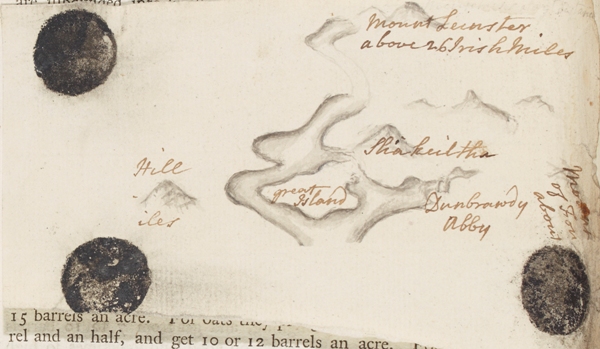 Mount Leinster
above 26 Irish Miles
Sliakeiltha
Hill
iles
great
Island
Dunbrawdy
Abby
of
about
15 barrels an acre. For oats they
rel and an half, and get 10 or 12 barrels an acre.